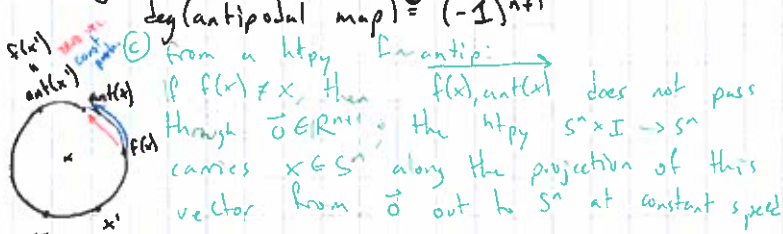 deg(antipodal map) = (-1)^{n+1}
(c) from a htpy f ~ antip:
If f(x) ≠ x, then f(x), ant(x) does not pass
through 0⃗ ∈ R^{n+1}. the htpy S^n × I → S^n
carries x ∈ S^n along the projection of this
vector from 0⃗ out to S^n at constant speed
f(x')
"
ant(x')
const
ant(x)
f(x)
x
x'